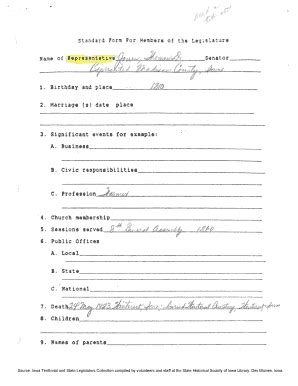 Standard Form For Members of the Legislature
Name of Representative Jones, Senator
Represented Madison County, Iowa
1. Birthday and place
2. Marriage (s) date place
3. Significant events for example:
A. Business
B. Civic responsibilities
C. Profession Farmer
4. Church membership
5. Sessions served 8th General Assembly 1860
6. Public Offices
A. Local
B. State
C. National
7. Death 24 May 1883 Winterset, Iowa; buried Winterset Cemetery, Winterset, Iowa
8. Children
9. Names of parents
Source: Iowa Territorial and State Legislators Collection compiled by volunteers and staff at the State Historical Society of Iowa Library, Des Moines, Iowa.